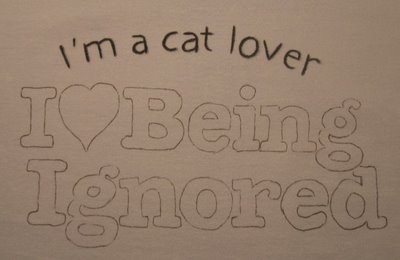 I'm a cat lover
I♥Being
Ignored